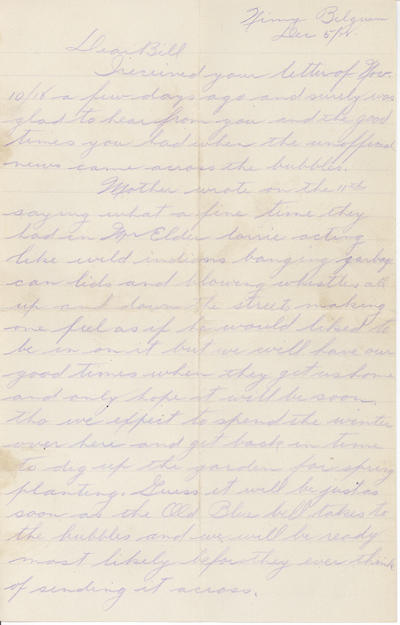 Nimy Belgium
Dec 5/18.
Dear Bill
I received your letter of Nov.
10/18 a few days ago and surely was
glad to hear from you and the good
times you had when the unofficial
news came across the bubbles.
Mother wrote on the 11th
saying what a fine time they
had in Mr Elder lorrie acting
like wild indians banging garbage
can lids and blowing whistles all
up and down the street, making
me feel as if he would liked to
be in on it but we will have our
good times when they get us home
and only hope it will be soon.
tho we expect to spend the winter
over here and get back in time
to dig up the garden for spring
planting. Guess it will be just as
soon as the Old Blue bill takes to
the bubbles and we will be ready
most likely before they ever think
of sending it across.